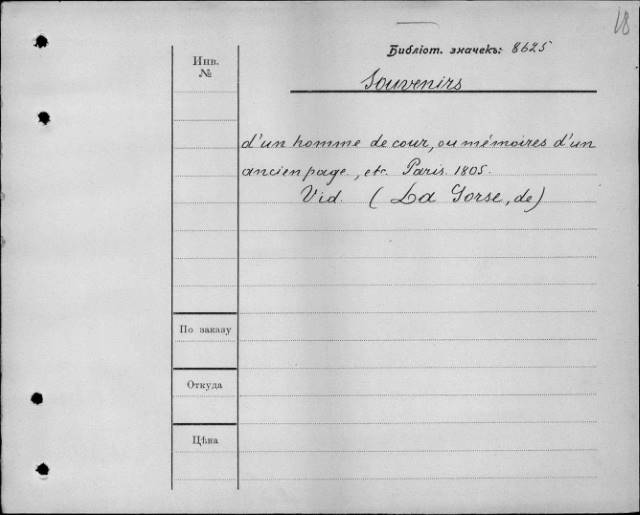 18
Библіот. значекъ: 8625
Инв.
№
Souvenirs
d'un homme de cour, ou mémoires d'un
ancien page, etc. Paris. 1805.
Vid. (La Gorse, de)
По заказу
Откуда
Цѣна